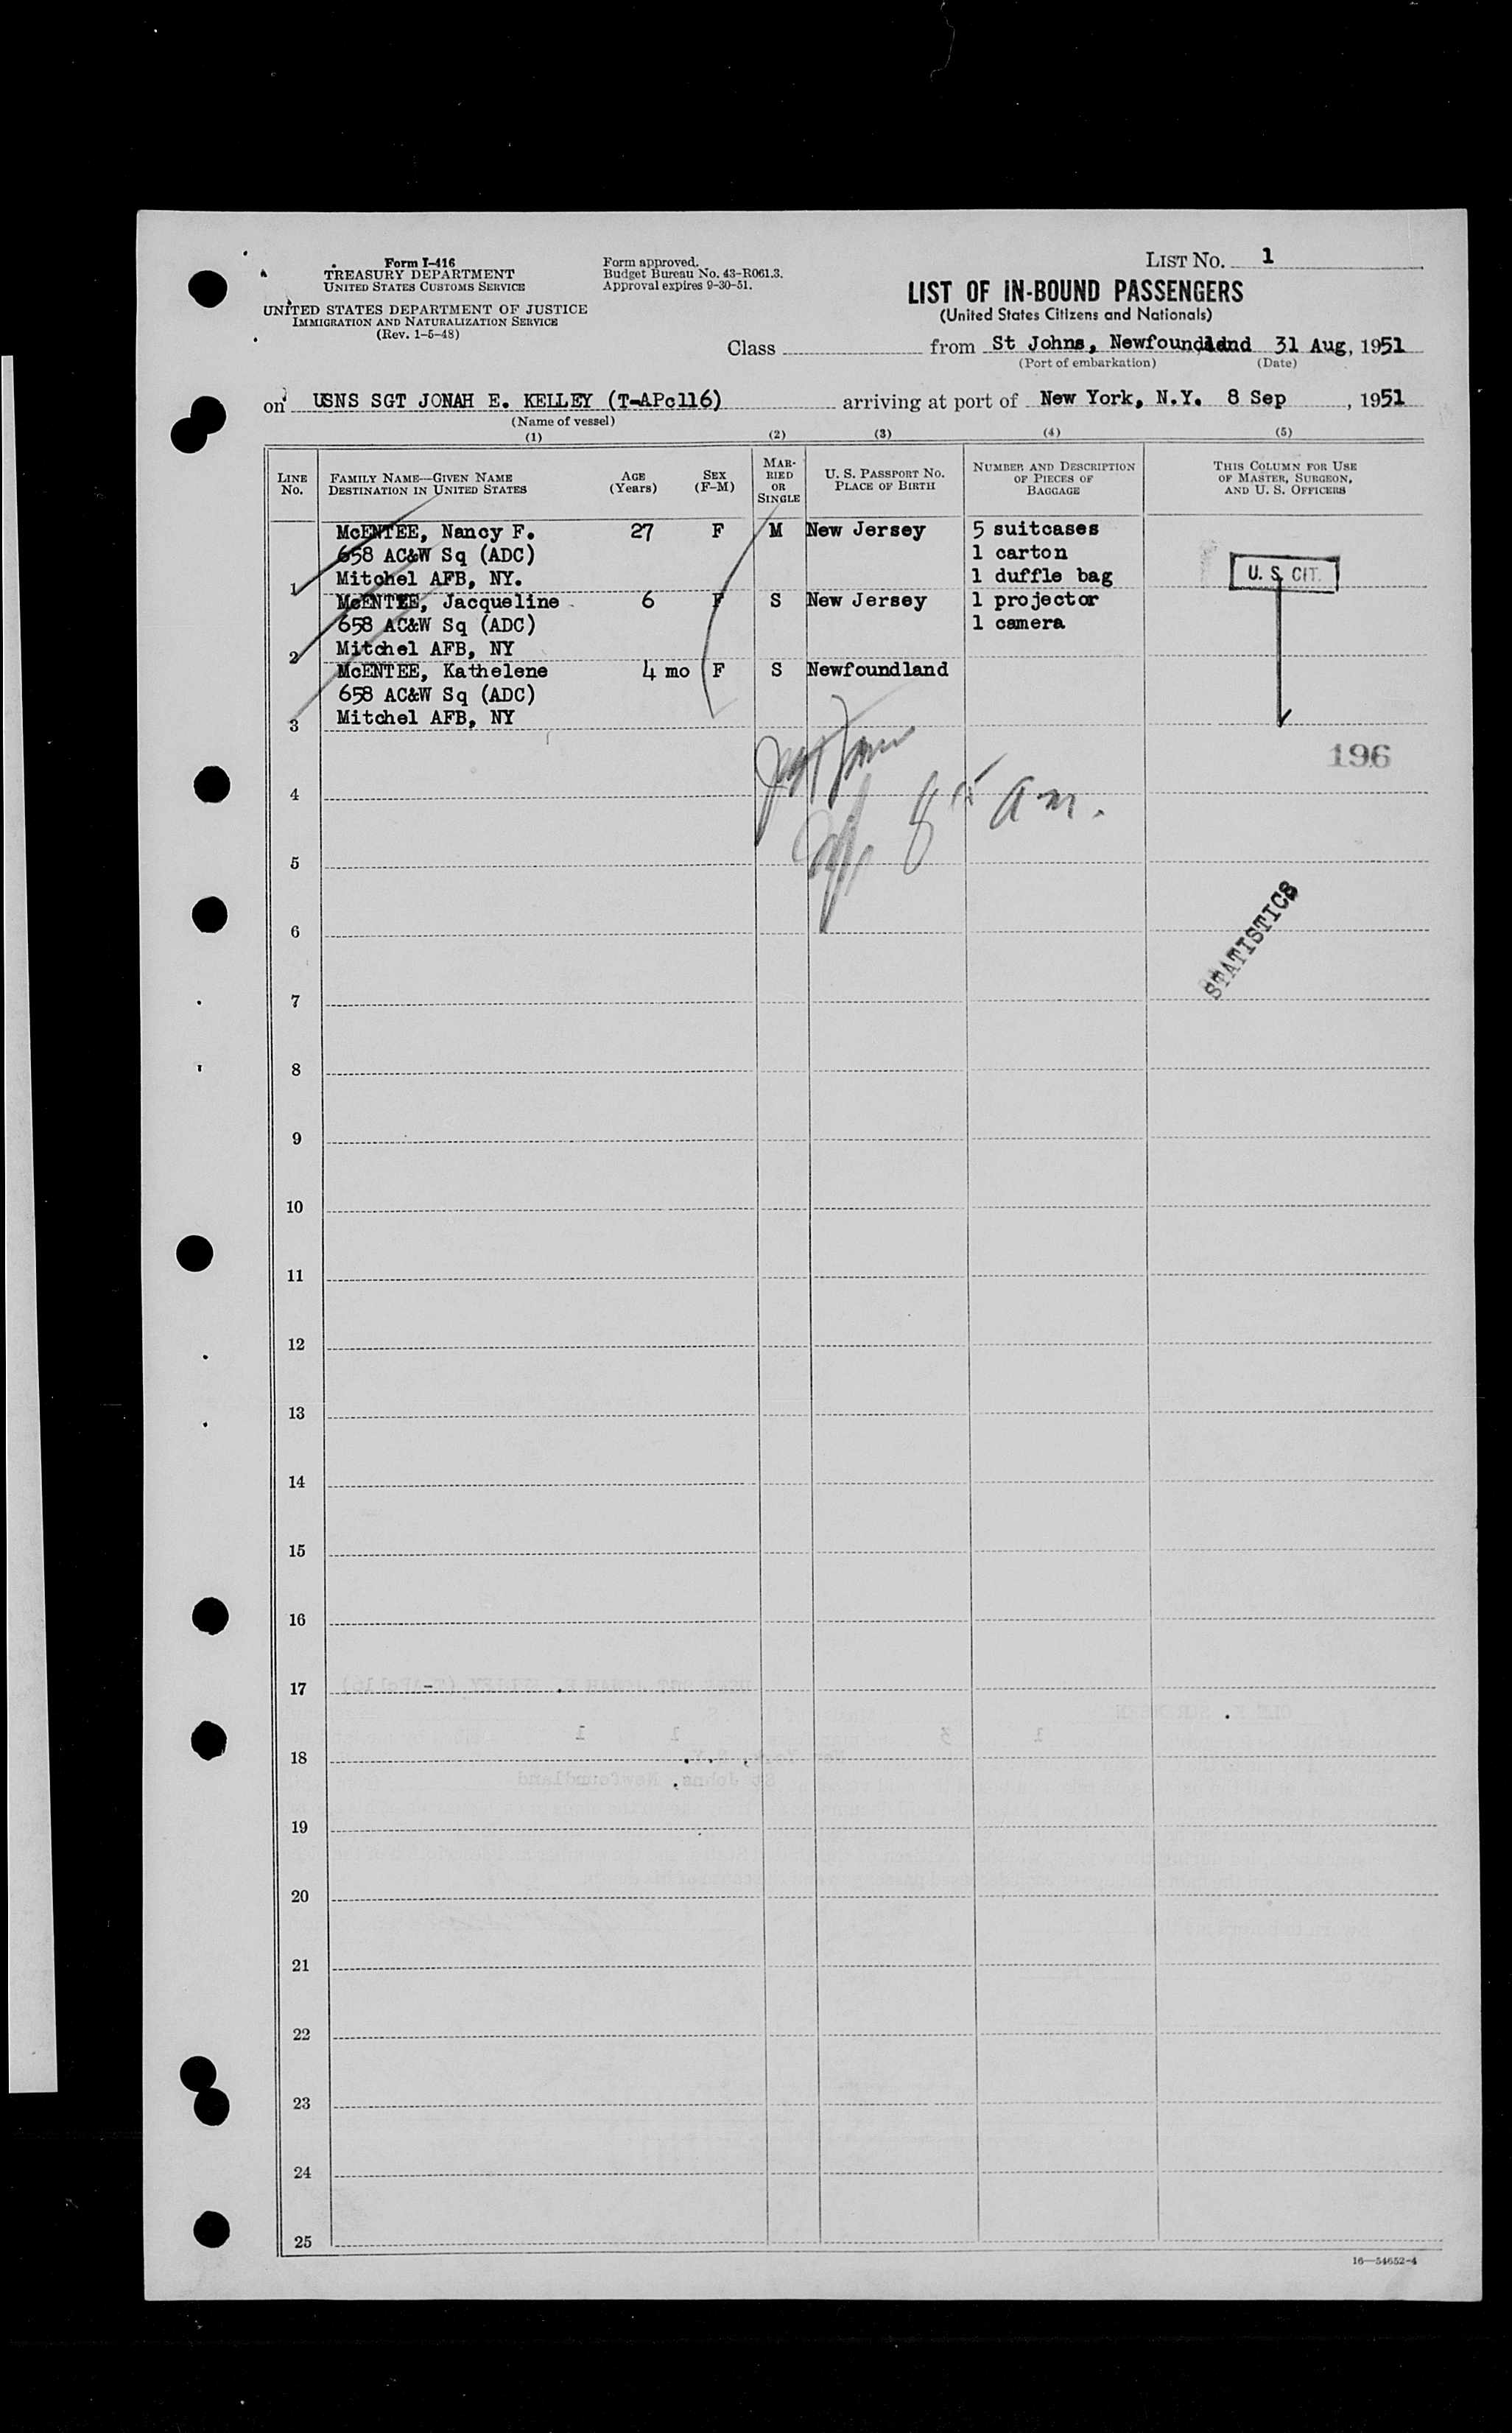 Form I-416
TREASURY DEPARTMENT
UNITED STATES CUSTOMS SERVICE
UNITED STATES DEPARTMENT OF JUSTICE
IMMIGRATION AND NATURALIZATION SERVICE
(Rev. 1-5-48)
Form approved.
Budget Bureau No. 43-R061.3.
Approval expires 9-30-51.
LIST NO. 1
LIST OF IN-BOUND PASSENGERS
(United States Citizens and Nationals)
Class from St Johns, Newfoundland 31 Aug, 1951
(Port of embarkation) (Date)
on USNS SGT JONAH E. KELLEY (T-APc116) arriving at port of New York, N.Y. 8 Sep, 1951
(Name of vessel)
(1) (2) (3) (4) (5)
LINE NO.
FAMILY NAME—GIVEN NAME
DESTINATION IN UNITED STATES
AGE (Years)
SEX (F-M)
MARRIED OR SINGLE
U. S. PASSPORT NO.
PLACE OF BIRTH
NUMBER AND DESCRIPTION OF PIECES OF BAGGAGE
THIS COLUMN FOR USE OF MASTER, SURGEON, AND U. S. OFFICERS
McENTEE, Nancy F. 27 F M New Jersey 5 suitcases
658 AC&W Sq (ADC) 1 carton
1 Mitchel AFB, NY. 1 duffle bag U. S. CIT.
McENTEE, Jacqueline 6 F S New Jersey 1 projector
658 AC&W Sq (ADC) 1 camera
2 Mitchel AFB, NY
McENTEE, Kathelene 4 mo F S Newfoundland
658 AC&W Sq (ADC)
3 Mitchel AFB, NY
196
4
am.
5
6
STATISTICS
7
8
9
10
11
12
13
14
15
16
17
18
19
20
21
22
23
24
25
16—54652-4